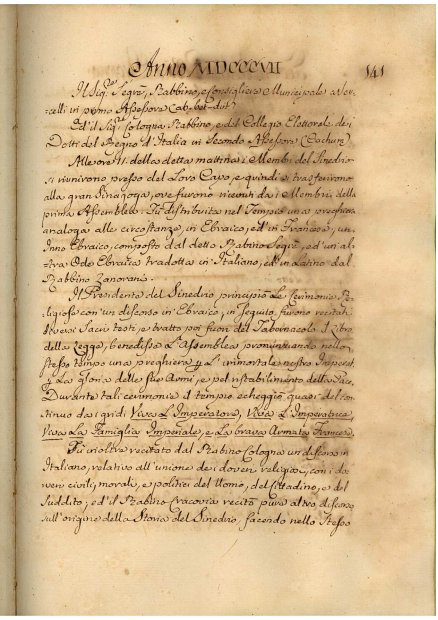 Anno MDCCCVII
141
Il Sigre Segrè, Rabbino, e Consigliere Municipale a Ver-
celli in primo Assessore Cab-bet-dut
Ed il Sigre Cologna Rabbino, e del Collegio Elettorale dei
Dotti del Regno d'Italia in Secondo Assessore (Cacham)
Alle ore 11 della detta mattina i Membri del Sinedrio
si riunirono presso del Loro Capo, e quindi si trasferirono
alla gran Sinagoga, ove furono ricevuti da i Membri della
prima Assemblea. Fù distribuita nel Tempio una preghiera
analoga alle circostanze, in Ebraico, ed in Francese, un
Inno Ebraico, composto dal detto Rabino Segrè, ed un al-
tra Ode Ebraica tradotta in Italiano, ed in Latino dal
Rabbino Zanorani.
Il Presidente del Sinedrio principiò Le Cerimonie Re-
ligiose con un discorso in Ebraico, in seguito furono recitati
diversi Sacri testi, e tratto poi fuori del Tabernacolo il Libro
della Legge, benedisse L'Assemblea pronunziando nello
stesso tempo una preghiera p L'immortale nostro Imperat.
p La gloria delle sue Armi, e pel ristabilimento della Pace.
Durante tali cerimonie il tempio echeggiò quasi del con-
tinuo da i gridi Viva L'Imperatore, Viva L'Imperatrice,
Viva La Famiglia Imperiale, e La brava Armata Francese.
Fù inoltre recitato dal Rabino Cologna un discorso in
Italiano, relativo all'unione dei doveri religiosi, con i do-
veri civili, morali, e politici del Uomo, del Cittadino, e del
Suddito; ed il Rabino Cracovia recitò pure altro discorso
sull'origine della Storia del Sinedrio, facendo nello stesso